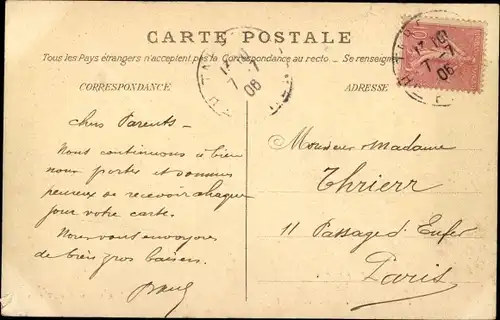 CARTE POSTALE
Tous les Pays étrangers n'acceptent pas la Correspondance au recto. — Se renseigne
CORRESPONDANCE
ADRESSE
7 - 7
06
7 - 7
06
chers Parents —
Nous continuons à bien
nous porter et sommes
heureux de recevoir chaque
jour votre carte.
Nous vous envoyons
de bien gros baisers.
Monsieur Madame
Thrierr
11 Passage d'Enfer
Paris